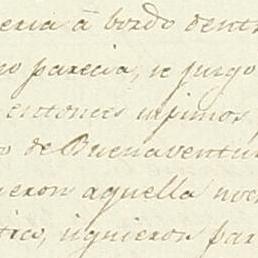 eria á bordo dentr
no parecia, se juzgo
entonces supimos,
o de Buenaventur
ieron aquella noc
tico, siguieron par